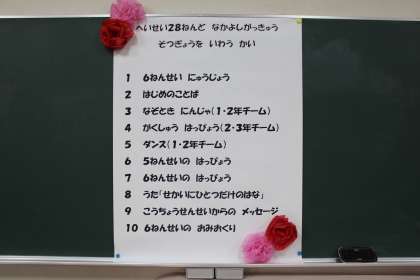 へいせい28ねんど なかよしがっきゅう
そつぎょうを いわう かい
1 6ねんせい にゅうじょう
2 はじめのことば
3 なぞとき にんじゃ(1・2年チーム)
4 がくしゅう はっぴょう(2・3年チーム)
5 ダンス(1・2年チーム)
6 5ねんせいの はっぴょう
7 6ねんせいの はっぴょう
8 うた「せかいにひとつだけのはな」
9 こうちょうせんせいからの メッセージ
10 6ねんせいの おみおくり